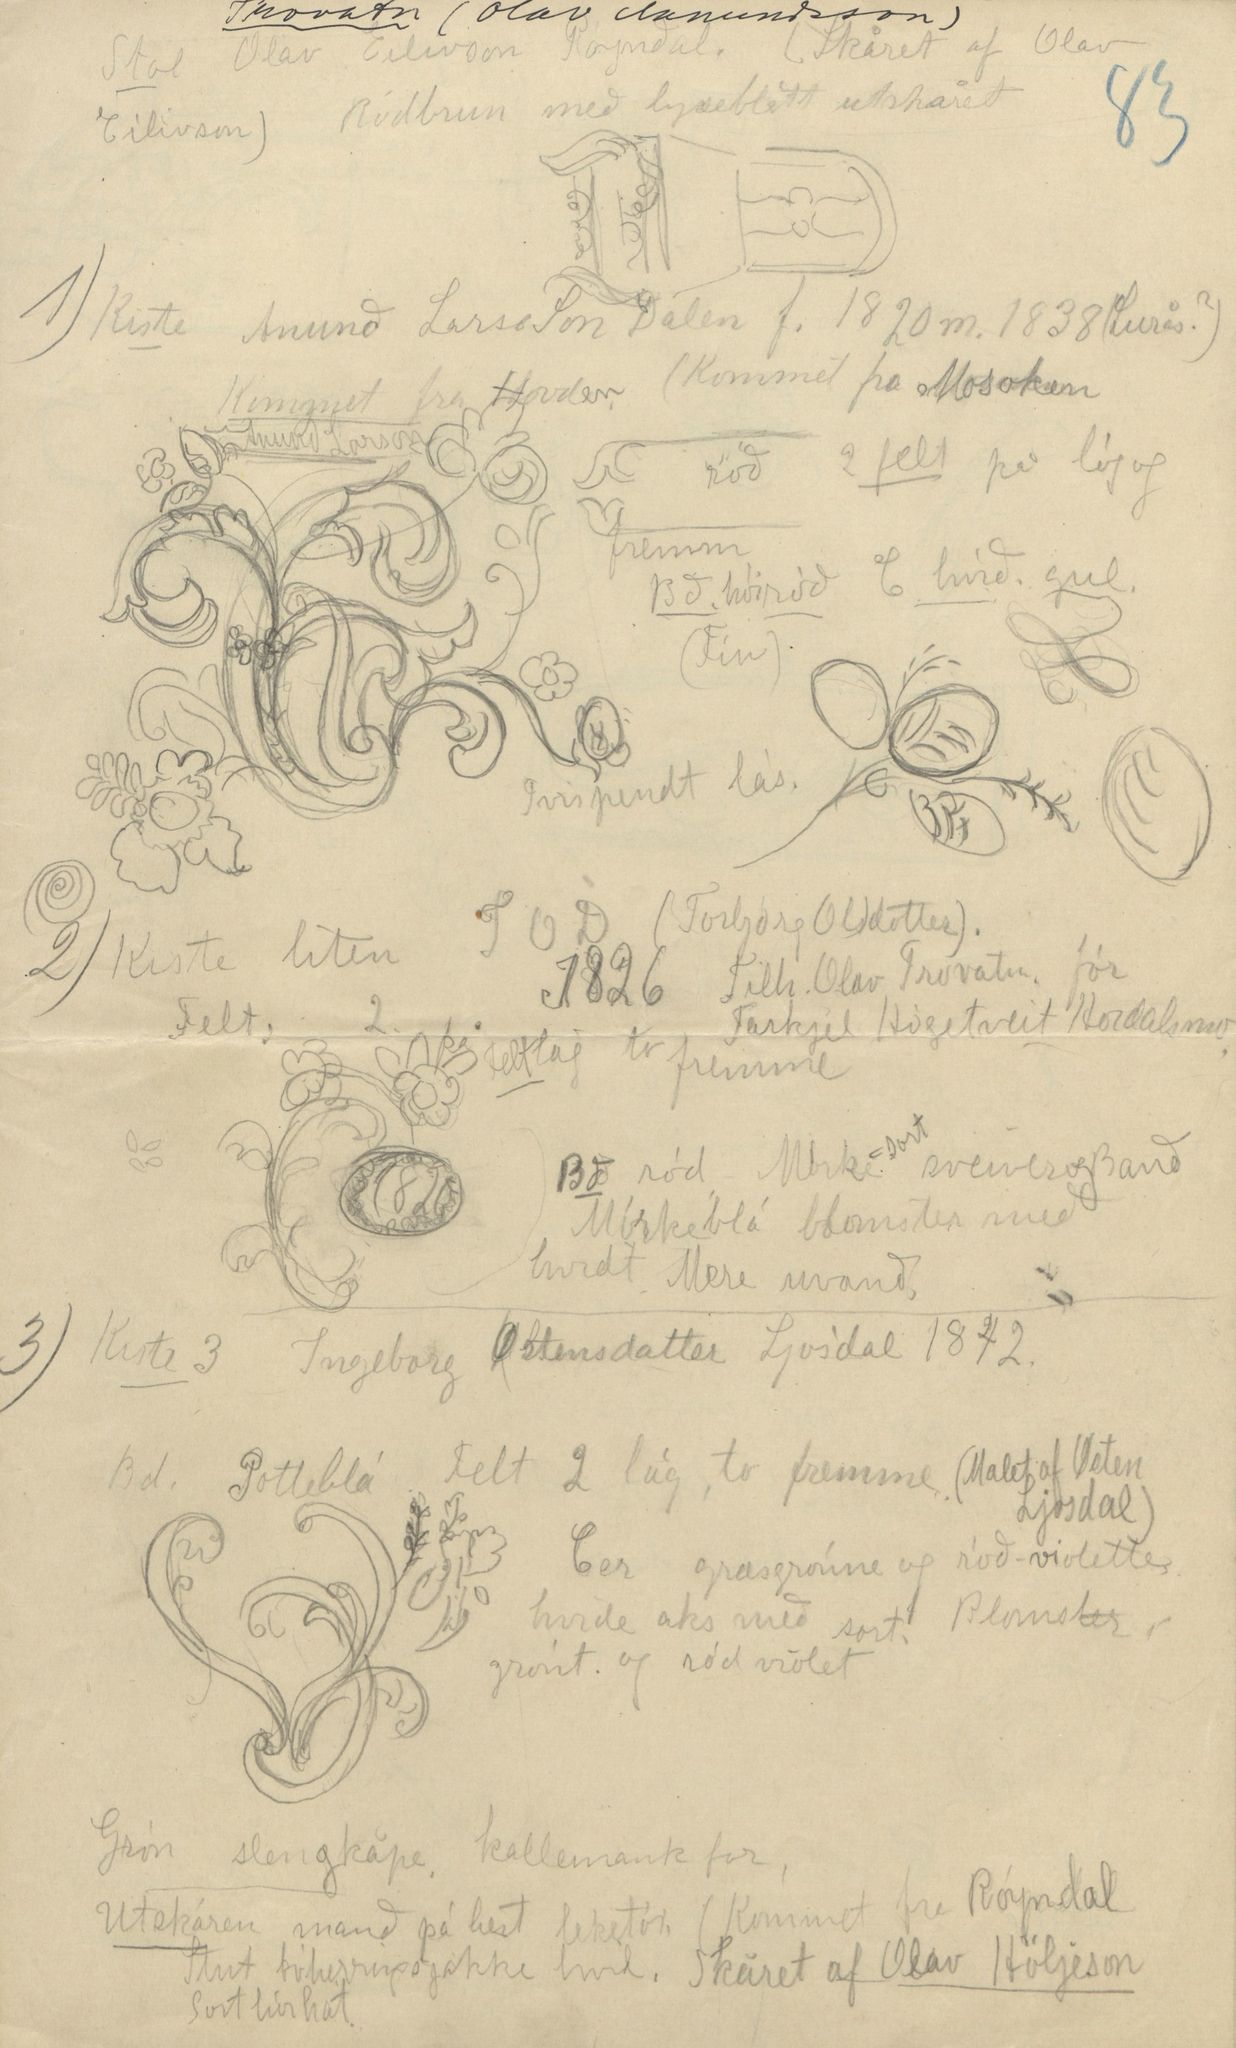 Trovatn (Olav Aamundsson)
Stol Olav Eilivson Røyndal. (Skåret af Olav
Eilivson) Rödbrun med lyseblått utskåret
83
1) Kiste Anund Larson Dalen f. 1820 m. 1838 (Lurås?)
Kommet fra Hovden (Kommet fra Mosoken
Anund Larson
röd 2 felt på låg og
fremm
Bd. höiröd C hvid. gul.
(Fin)
lås.
2) Kiste liten T O D (Torbjörg Olsdotter).
1826 Tilh. Olav Trovatn. för
Felt, 2. Tarkjel Högetveit
på Felt låg to fremme
182
Bd röd Mörke-sort sveiver og Band
Mörkeblå blomster med
hvidt Mere uvand,
3) Kiste 3 Ingeborg Ostensdatter Ljosdal 1842.
Bd. Potteblå Felt 2 låg, to fremme. (Malet af Östen
Ljosdal)
Cer græsgrönne og röd-violette
hvide aks med sort. Blomster,
grönt. og röd violet
Grön slengkåpe, kallemank for,
Utskåren mand på hest leketöi (Kommet fra Röyndal
Stut hvid. Skåret af Olav Höljeson
Sort